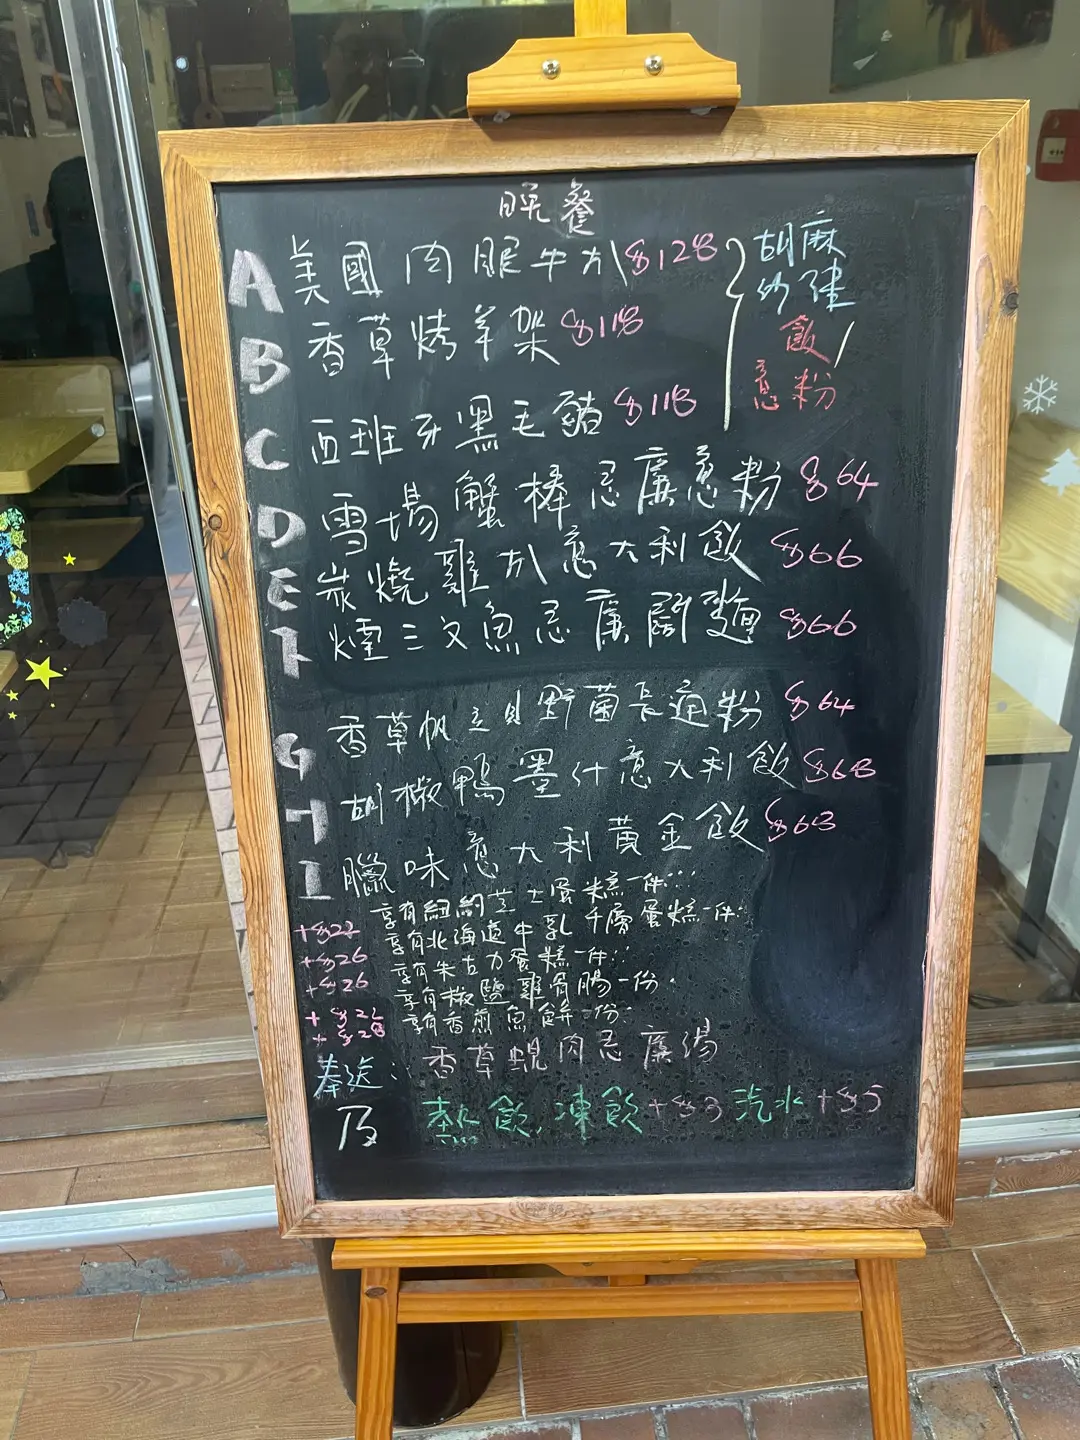 晚餐
A 美國肉眼牛扒 $128
B 香草烤羊架 $118
C 西班牙黑毛豬 $118
胡麻
飯/
意粉
D 雪場蟹棒忌廉意粉 $64
E 炭燒雞扒意大利飯 $66
F 煙三文魚忌廉闊麵 $66
G 香草帆立貝野菌長通粉 $64
H 胡椒鴨墨汁意大利飯 $68
I 臘味意大利黃金飯 $63
+$22 享有紐約芝士蛋糕一件
+$26 享有北海道牛乳千層蛋糕一件
+$26 享有朱古力蛋糕一件
享有椒鹽雞骨腸一份
+$28 享有香煎魚餅一份
奉送: 香草蜆肉忌廉湯
及 熱飲, 凍飲+$3 汽水+$5